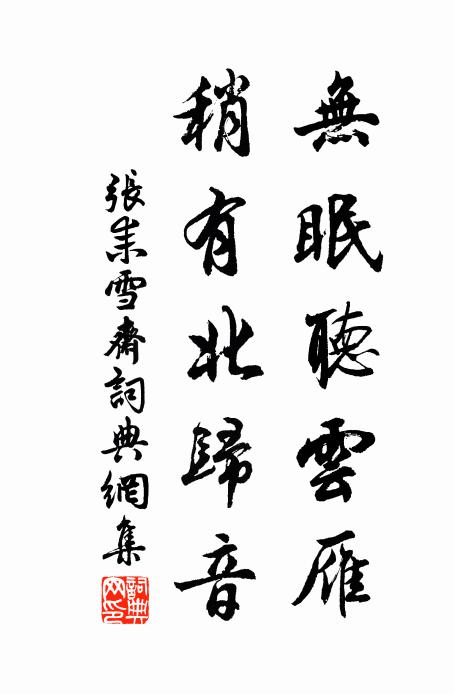 無眠聽雲雁
稍有北歸音
張耒雪齋詞典網集
詞典網印